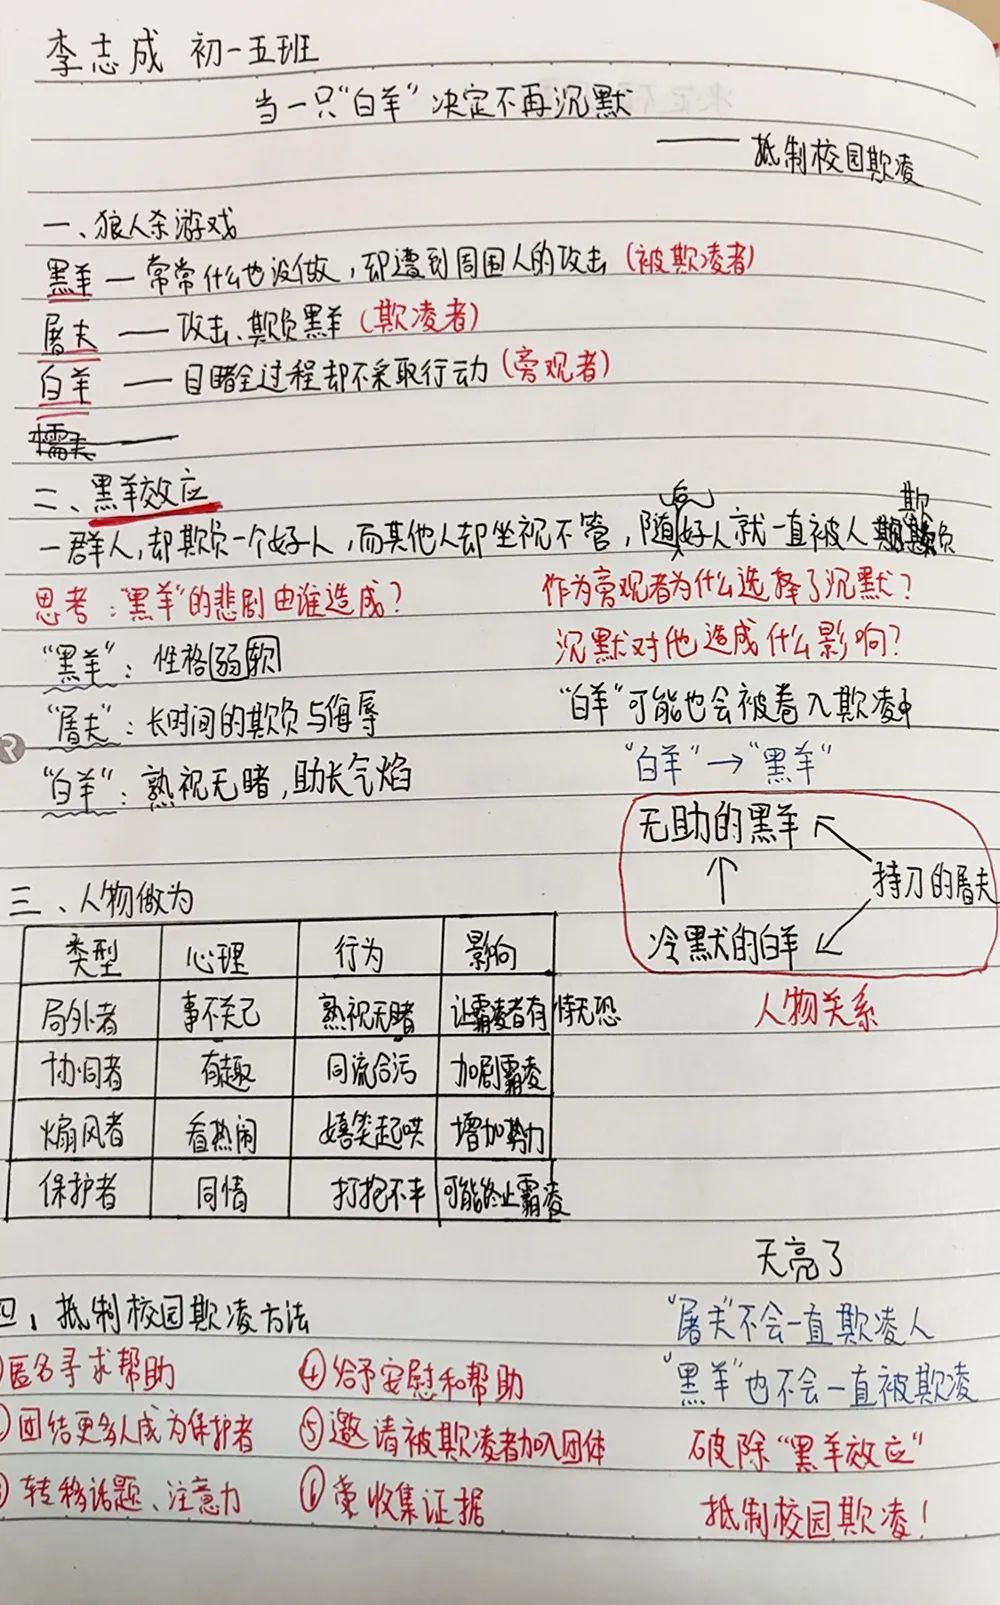 李志成 初一五班
当一只“白羊”决定不再沉默
——抵制校园欺凌
一、狼人杀游戏
黑羊—常常什么也没做，却遭到周围人的攻击（被欺凌者）
屠夫——攻击、欺负黑羊（欺凌者）
白羊——目睹全过程却不采取行动（旁观者）
二、黑羊效应
一群人，却欺负一个好人，而其他人却坐视不管，随后好人就一直被人欺负
思考：“黑羊”的悲剧由谁造成？
“黑羊”：性格弱软
“屠夫”：长时间的欺负与侮辱
“白羊”：熟视无睹，助长气焰
作为旁观者为什么选择了沉默？
沉默对他造成什么影响？
“白羊”可能也会被卷入欺凌中
“白羊”→“黑羊”
无助的黑羊
持刀的屠夫
冷默的白羊
人物关系
三、人物做为
类型 心理 行为 影响
局外者 事不关己 熟视无睹 让霸凌者有恃无恐
协同者 有趣 同流合污 加剧霸凌
煽风者 看热闹 嬉笑起哄 增加势力
保护者 同情 打抱不平 可能终止霸凌
四、抵制校园欺凌方法
匿名寻求帮助
团结更多人成为保护者
转移话题、注意力
④给予安慰和帮助
⑤邀请被欺凌者加入团体
⑥收集证据
天亮了
“屠夫”不会一直欺凌人
“黑羊”也不会一直被欺凌
破除“黑羊效应”
抵制校园欺凌！